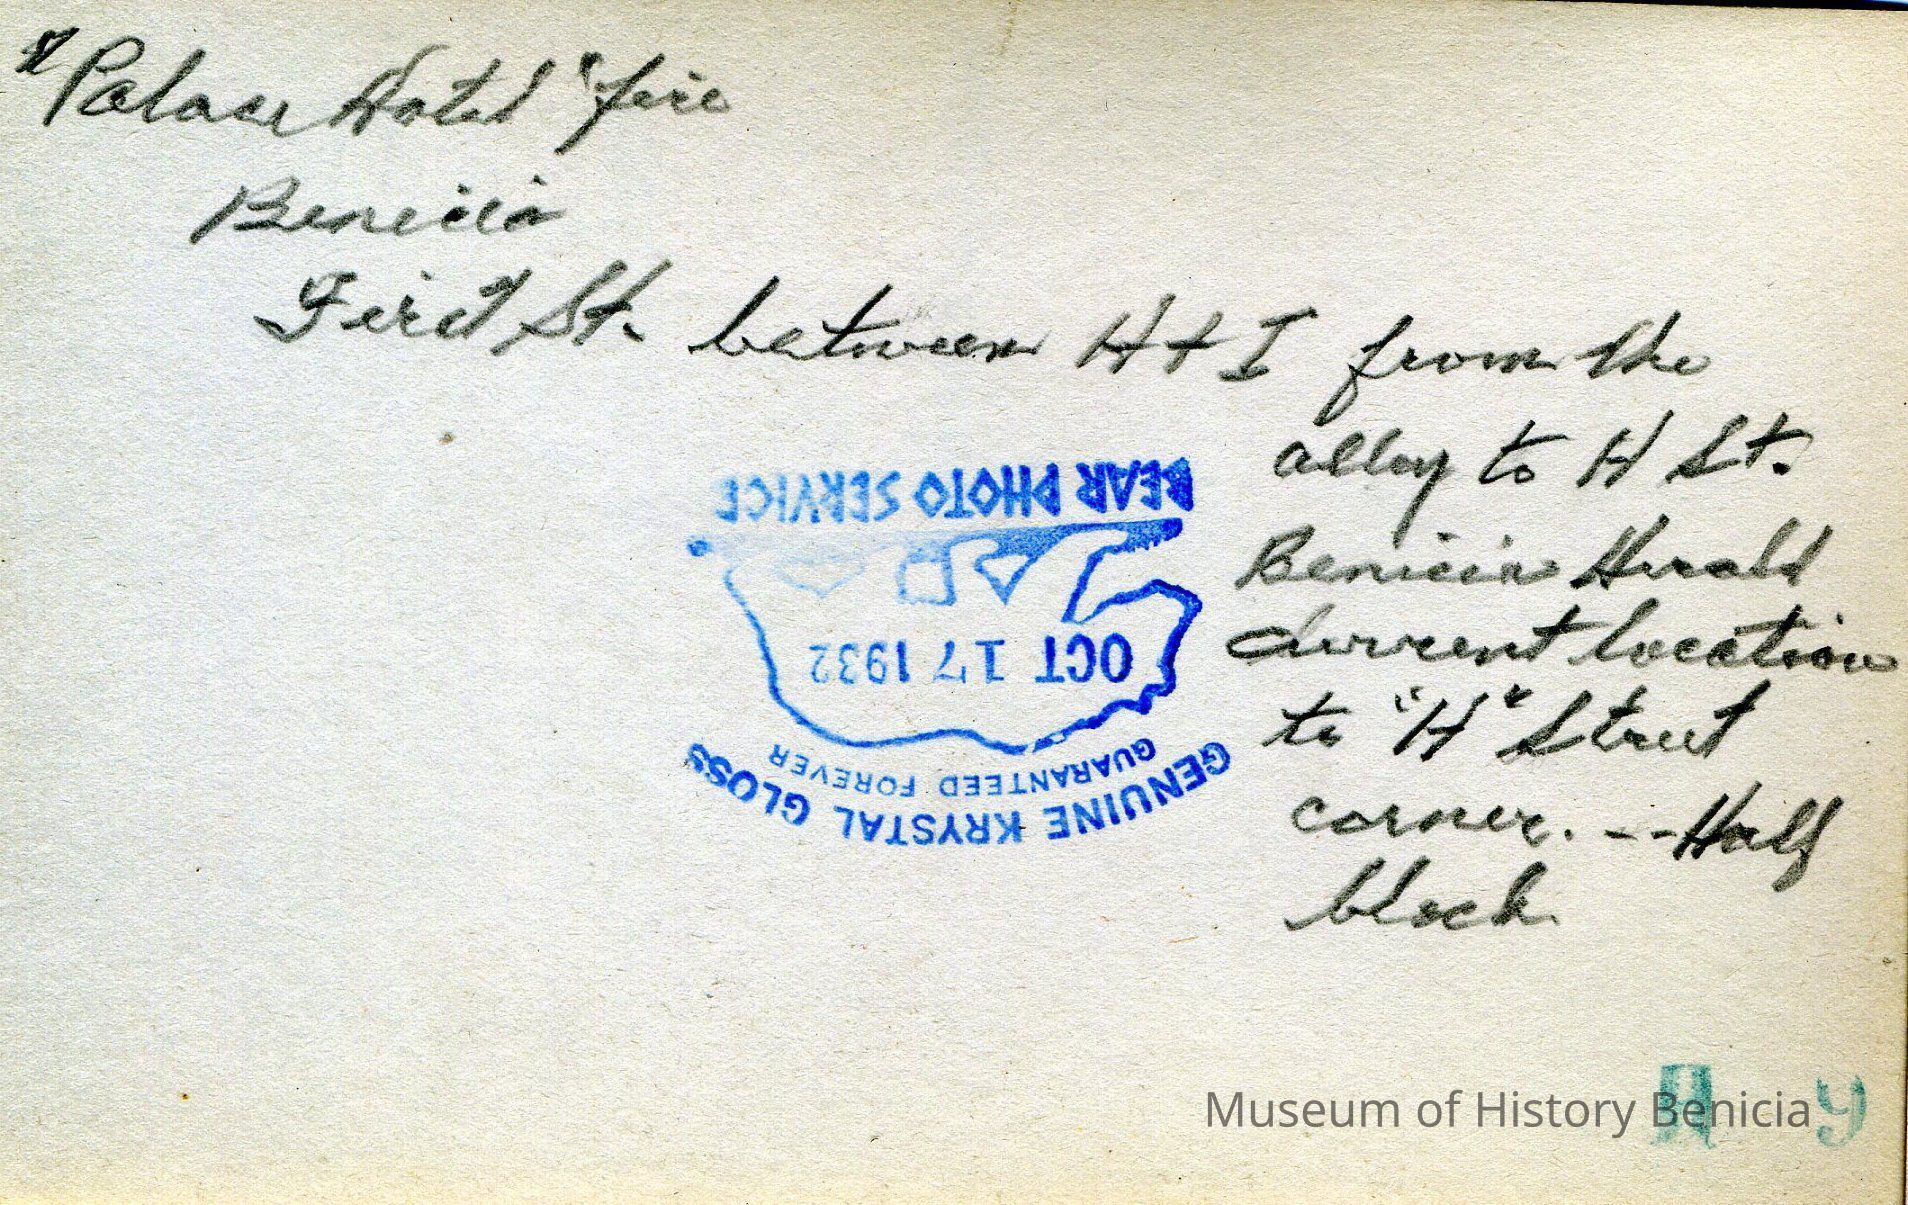 "Palace Hotel" fire
Benicia
First St. between H + I from the
alley to H St.
Benicia Herald
current location
to "H" Street
corner. -- Half
block.
BEAR PHOTO SERVICE
OCT 17 1932
GUARANTEED FOREVER
GENUINE KRYSTAL GLOSS
Museum of History Benicia